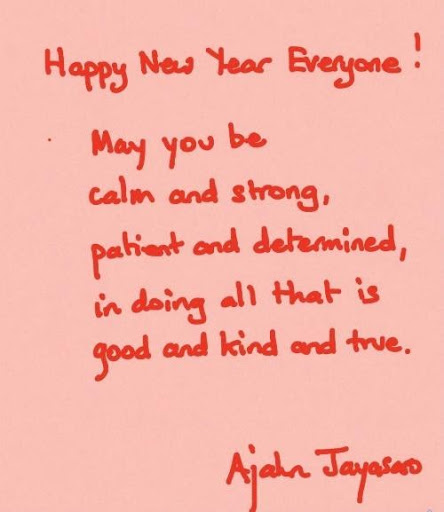 Happy New Year Everyone!
May you be
calm and strong,
patient and determined,
in doing all that is
good and kind and true.
Ajahn Jayasaro